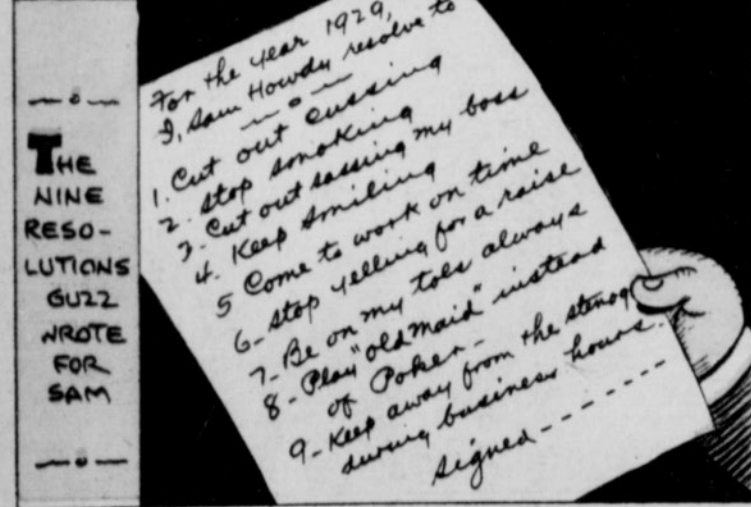 THE
NINE
RESO-
LUTIONS
GUZZ
WROTE
FOR
SAM
For the year 1929,
I, Sam Howdy resolve to
1. Cut out cussing
2. Stop smoking
3- Cut out sassing my boss
4. Keep smiling
5 Come to work on time
6- Stop yelling for a raise
7- Be on my toes always
8- Play "old maid" instead
of Poker-
9- Keep away from the stenog
during business hours.
Signed--------